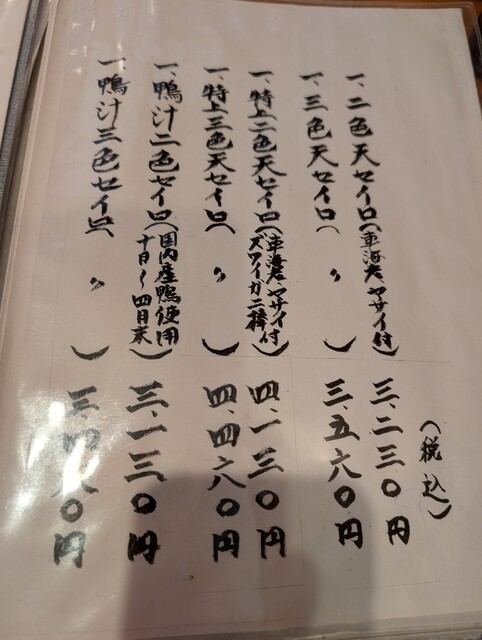 (税込)
一、二色天セイロ(車海老、ヤサイ付) 三、二三〇円
一、三色天セイロ( 〃 ) 三、五六〇円
一、特上二色天セイロ(車海老、ヤサイ付 ズワイガニ棒) 四、一三〇円
一、特上三色天セイロ( 〃 ) 四、四六〇円
一、鴨汁二色セイロ(国内産鴨使用 十月〜四月末) 三、一三〇円
一、鴨汁三色セイロ( 〃 ) 三、四六〇円